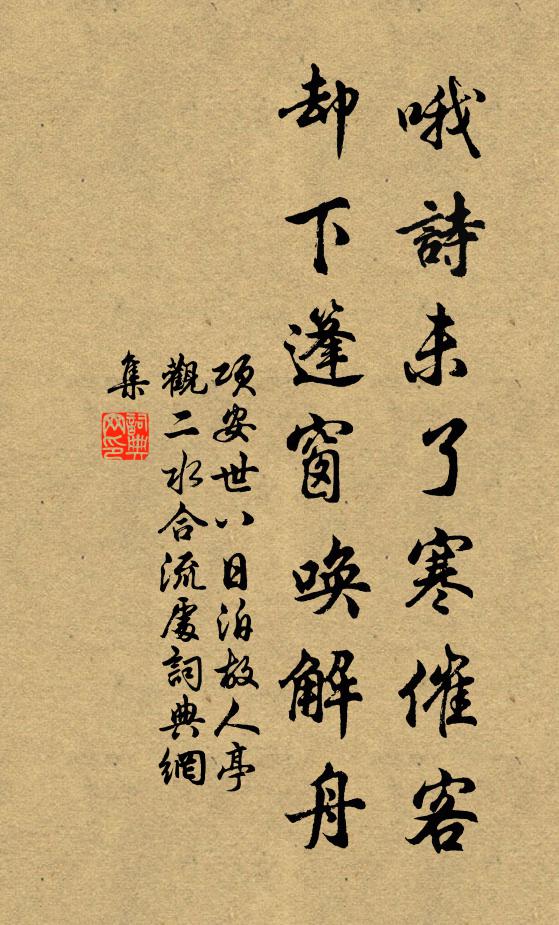 哦詩未了寒催客
却下篷窗喚解舟
項安世八日泊故人亭
觀二水合流處詞典網
集
詞典
網印